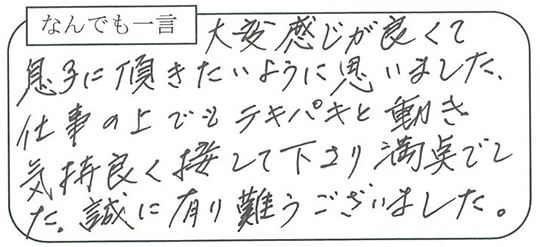 なんでも一言
大変感じが良くて
息子に頂きたいように思いました、
仕事の上でもテキパキと動き
気持良く接して下さり満点でし
た。誠に有り難うございました。